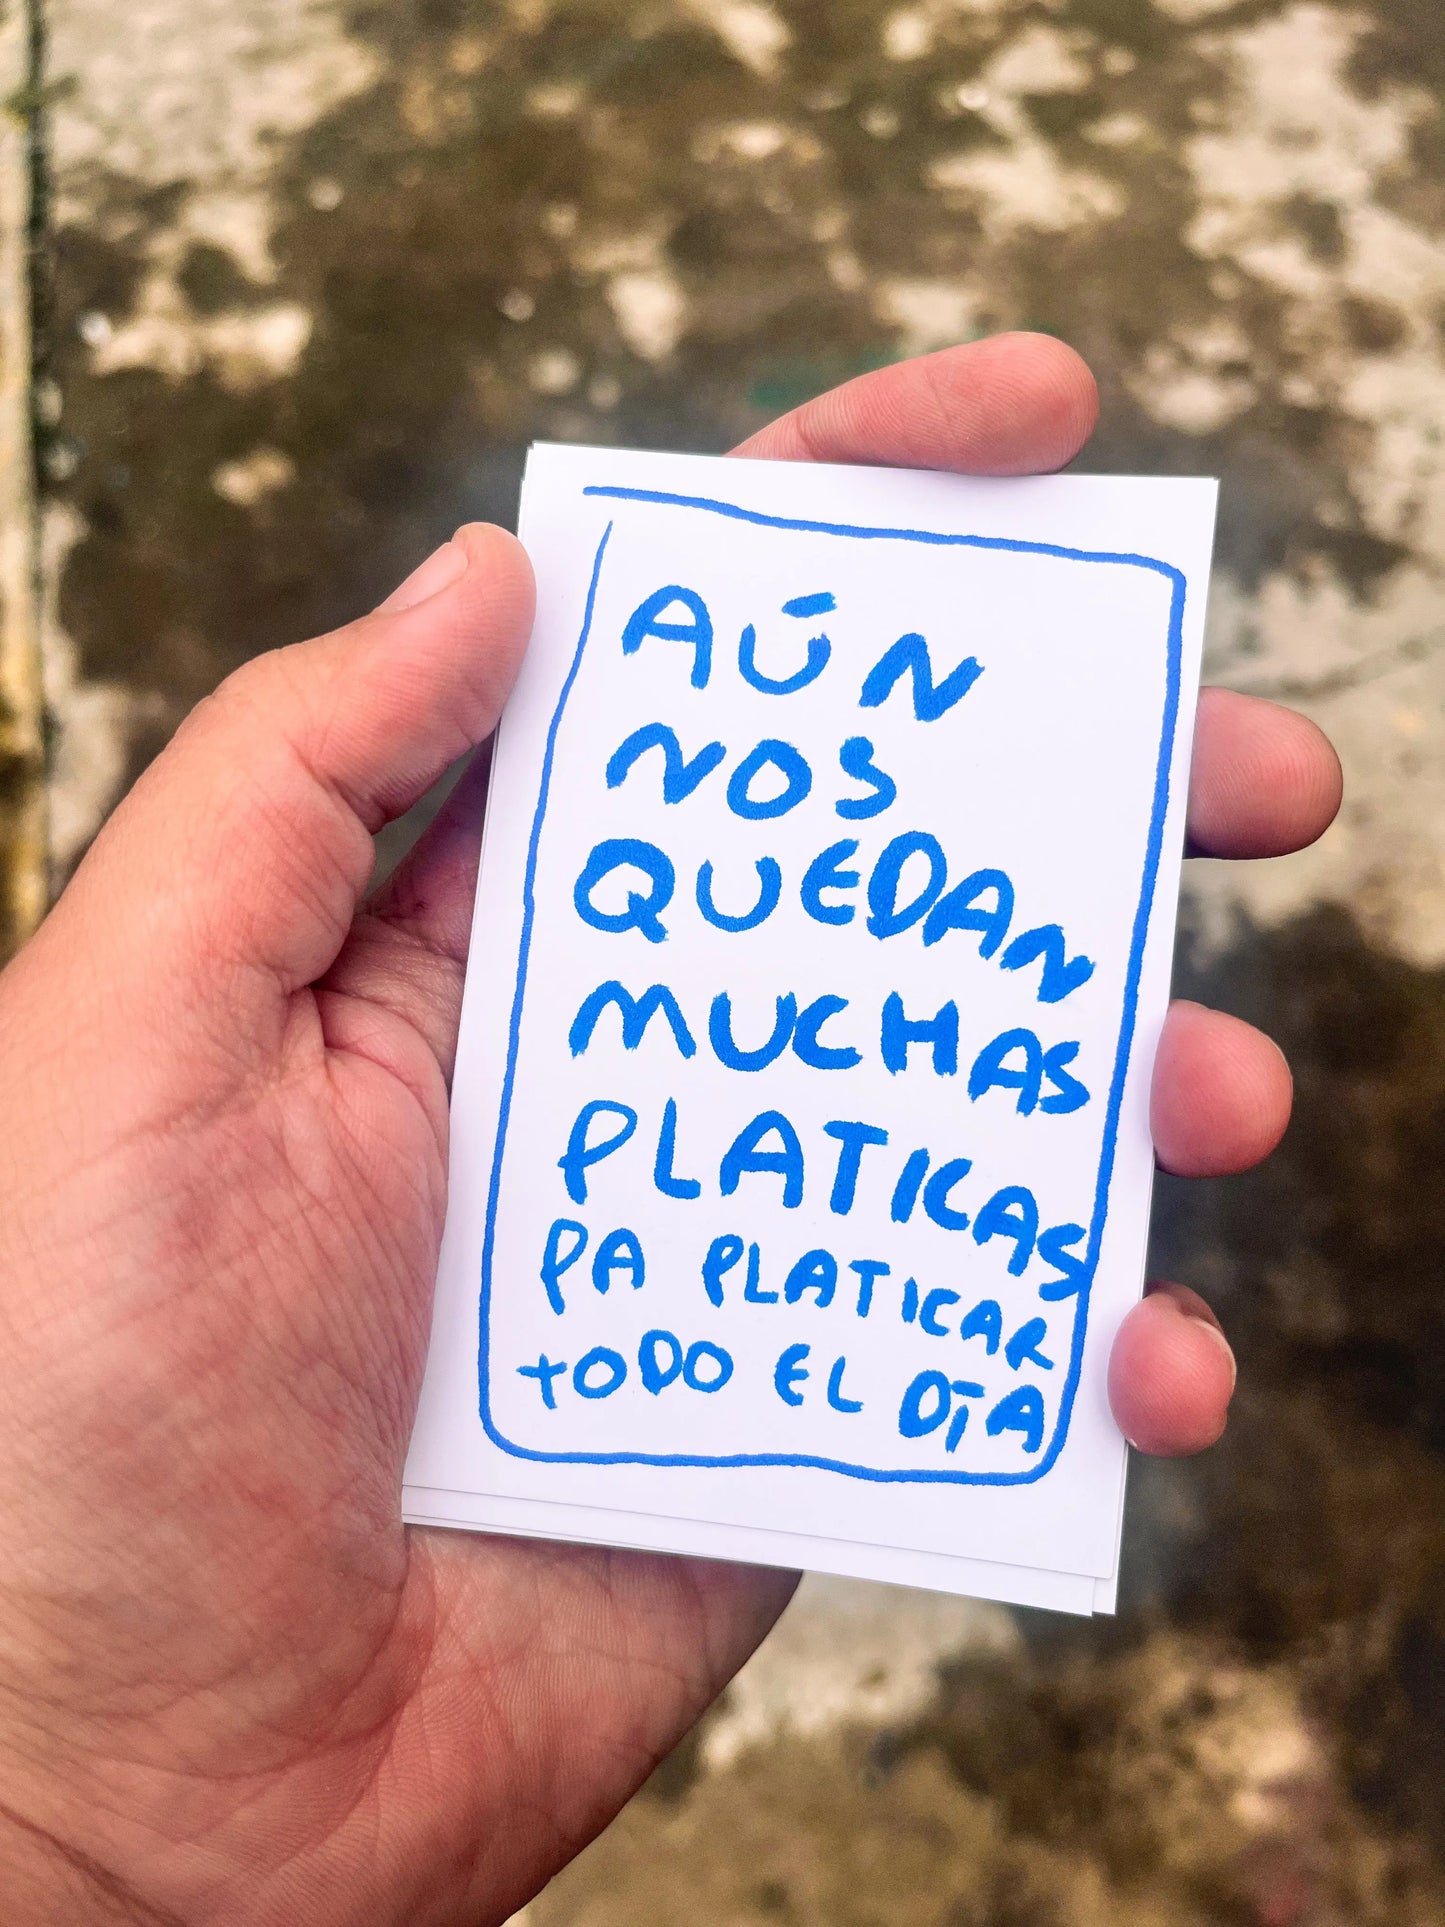 AÚN
NOS
QUEDAN
MUCHAS
PLATICAS
PA PLATICAR
TODO EL DÍA